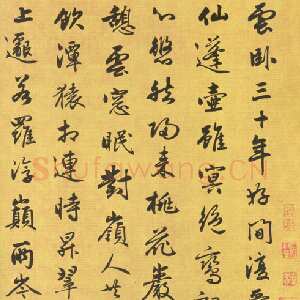 雲卧三十年好閒復
仙蓬壺雖冥絕鸞
心悠然歸來桃花巖
憩雲窓眠對嶺人共
飲潭猿相連時昇翠
上邈若羅浮巔兩岑